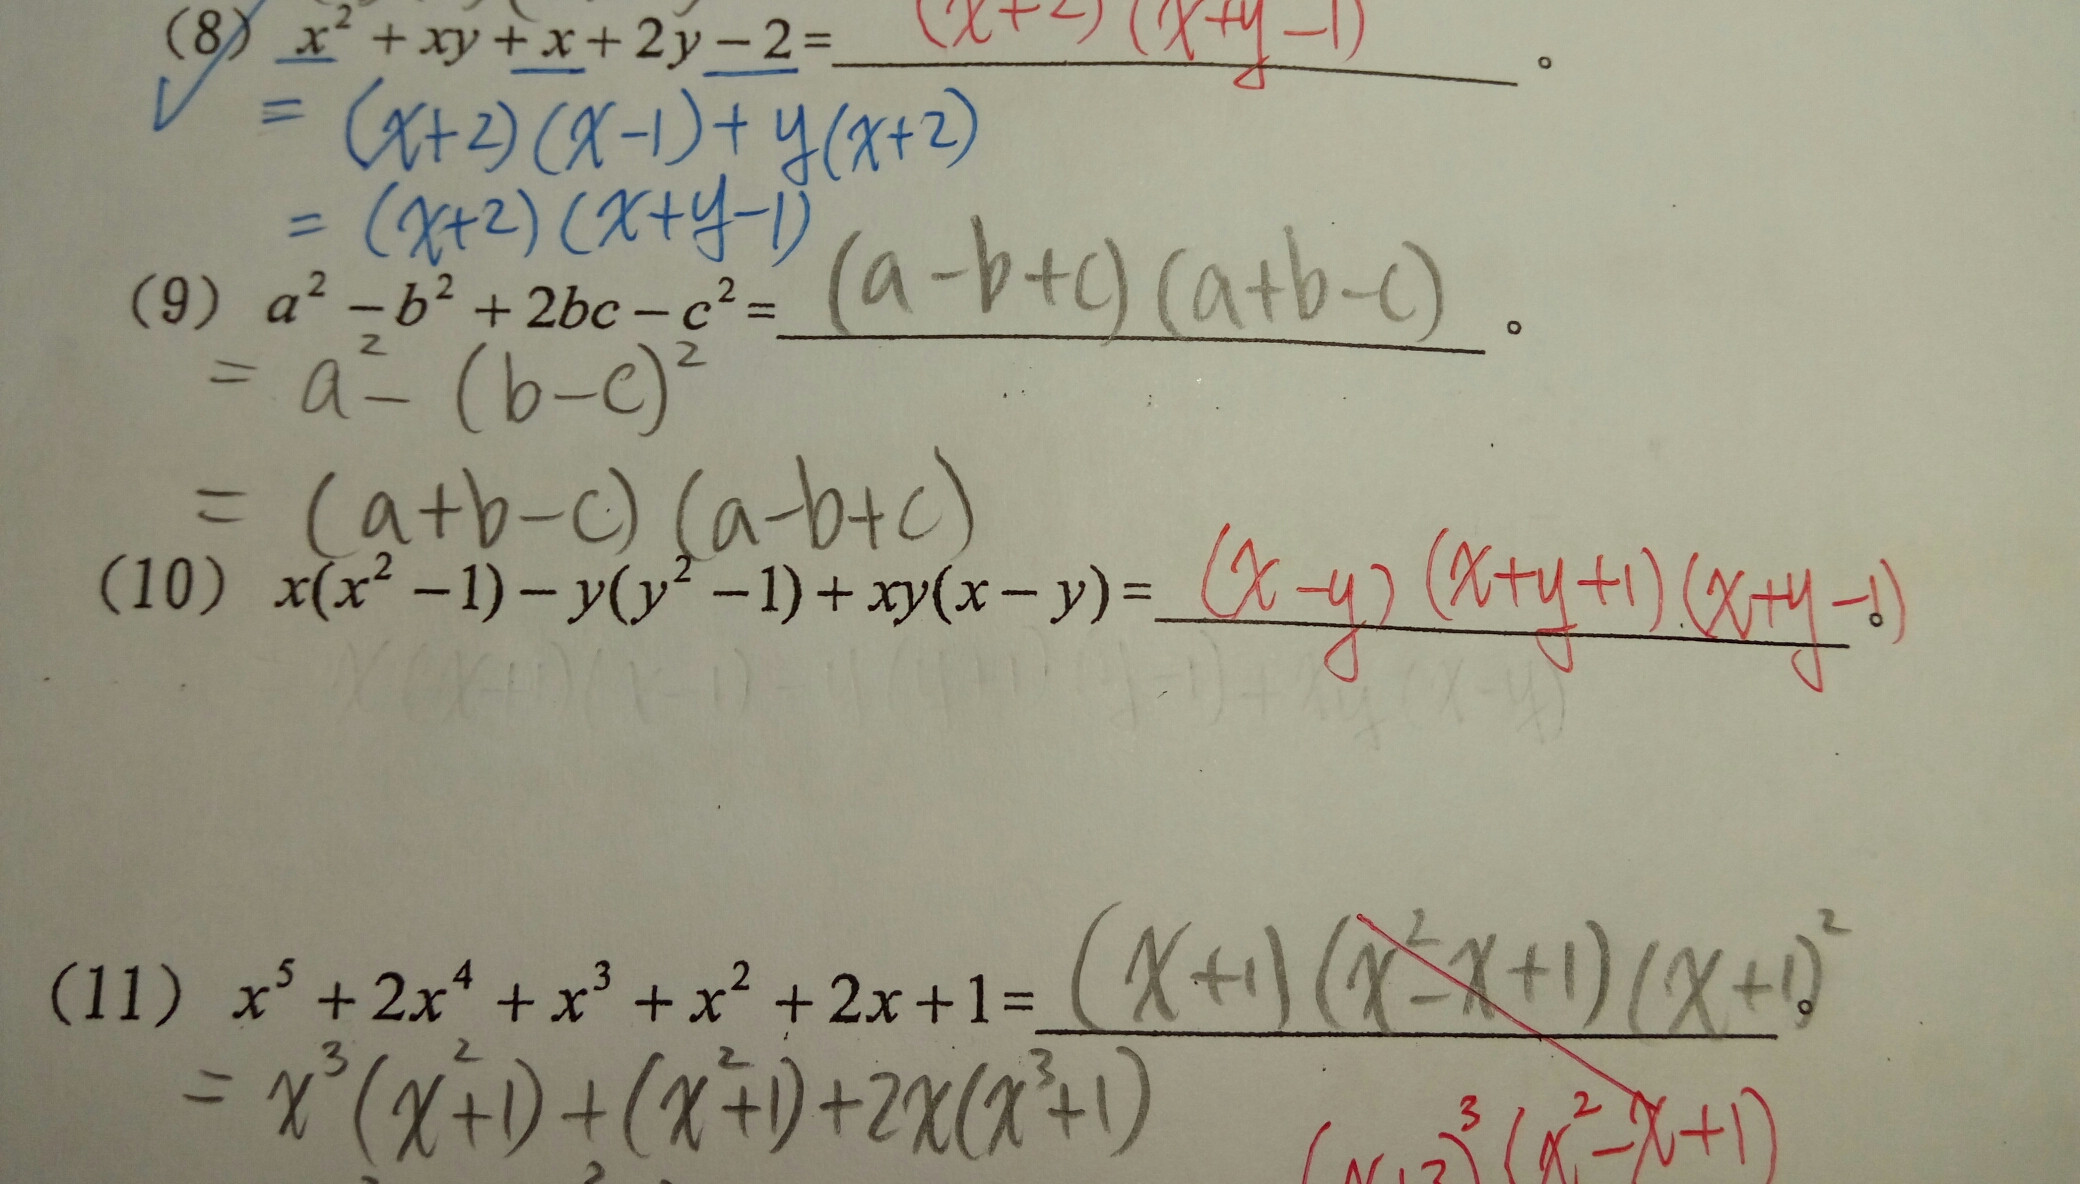 (8) x² + xy + x + 2y − 2 = (x+2)(x+y−1) 。
= (x+2)(x−1)+y(x+2)
= (x+2)(x+y−1)
(9) a² − b² + 2bc − c² = (a−b+c)(a+b−c) 。
= a² − (b−c)²
= (a+b−c)(a−b+c)
(10) x(x² − 1) − y(y² − 1) + xy(x − y) = (x−y)(x+y+1)(x+y−1) 。
(11) x⁵ + 2x⁴ + x³ + x² + 2x + 1 = (x+1)(x²−x+1)(x+1)² 。
= x³(x²+1)+(x²+1)+2x(x³+1)
(x²−x+1)